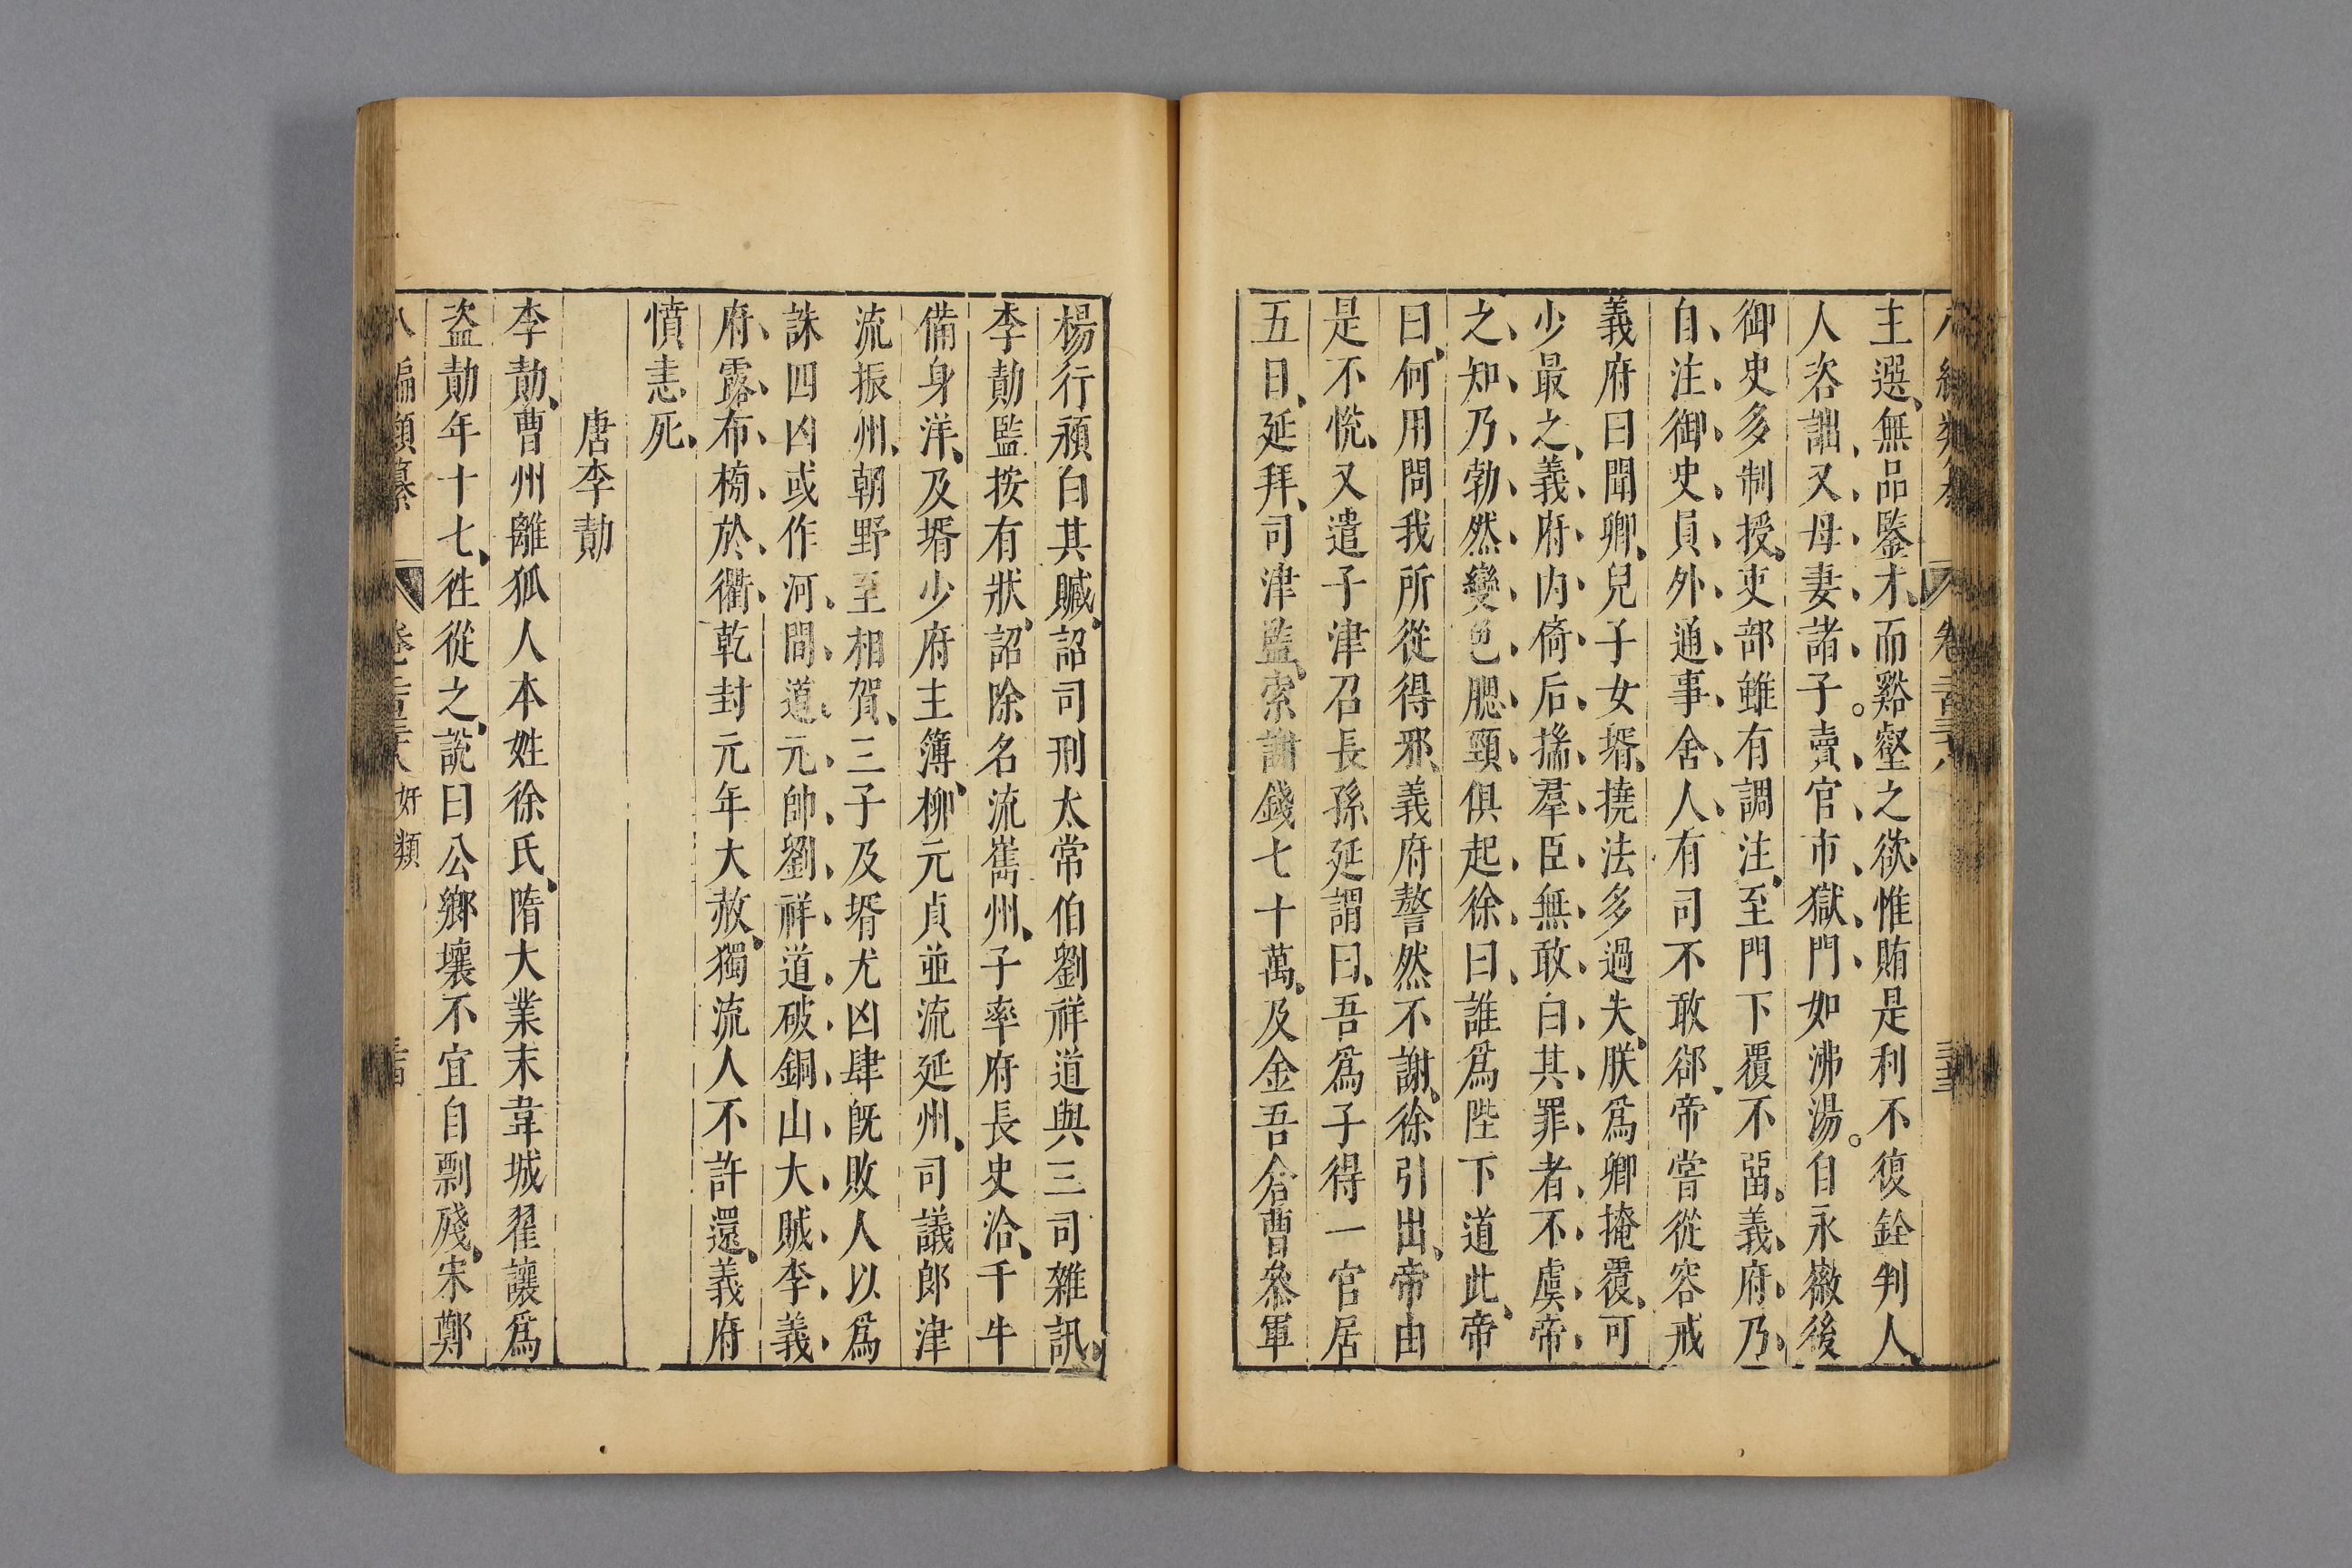 主選無品鑒才而谿壑之欲惟賄是利不復銓判人
人咨詘又母妻諸子。賣官市獄門如沸湯。自永徽後
御史多制授吏部雖有調注至門下覆不畱義府乃
自注御史員外通事舍人有司不敢郤帝嘗從容戒
義府曰聞卿兒子女壻撓法多過失朕爲卿掩覆可
少最之義府內倚后揣羣臣無敢白其罪者不虞帝
之知乃勃然變色腮頸俱起徐曰誰爲陛下道此帝
曰何用問我所從得邪義府謷然不謝徐引出帝由
是不恱又遣子津召長孫延謂曰吾爲子得一官居
五日延拜司津監索謝錢七十萬及金吾倉曹叅軍
楊行頴白其贓詔司刑太常伯劉祥道與三司雜訊
李勣監按有狀詔除名流巂州子率府長史洽千牛
備身洋及壻少府主簿柳元貞並流延州司議郎津
流振州朝野至相賀三子及壻尤凶肆旣敗人以爲
誅四凶或作河間道元帥劉祥道破銅山大賊李義
府露布榜於衢乾封元年大赦獨流人不許還義府
憤恚死
唐李勣
李勣曹州離狐人本姓徐氏隋大業末韋城翟讓爲
盜勣年十七徃從之說曰公鄉壤不宜自剽殘宋鄭
八編類纂 奸類